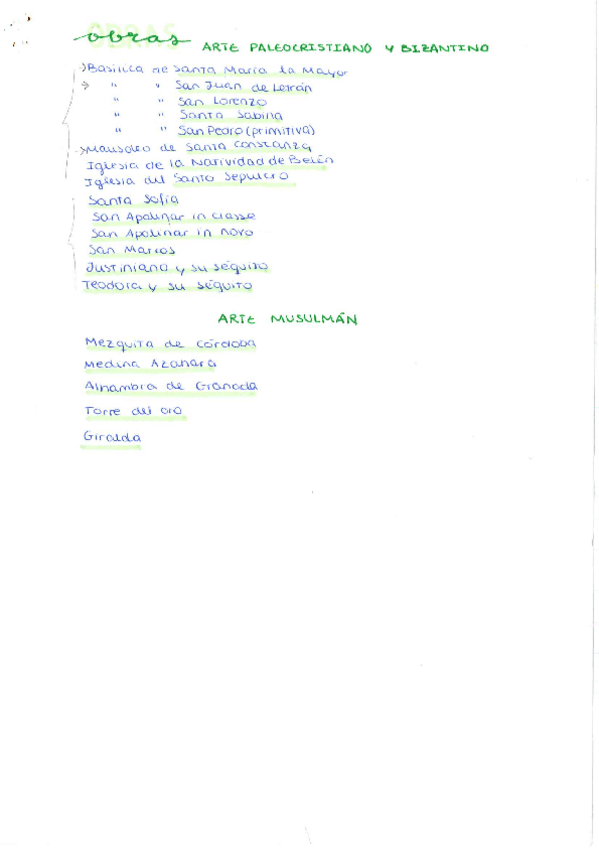 obras ARTE PALEOCRISTIANO Y BIZANTINO
→Basílica de Santa María la Mayor
→ " " San Juan de Letrán
" " San Lorenzo
" " Santa Sabina
" " San Pedro (primitiva)
→Mausoleo de Santa Constanza
Iglesia de la Natividad de Belén
Iglesia del Santo Sepulcro
Santa Sofía
San Apolinar in classe
San Apolinar in novo
San Marcos
Justiniano y su séquito
Teodora y su séquito
ARTE MUSULMÁN
Mezquita de Córdoba
Medina Azahara
Alhambra de Granada
Torre del oro
Giralda